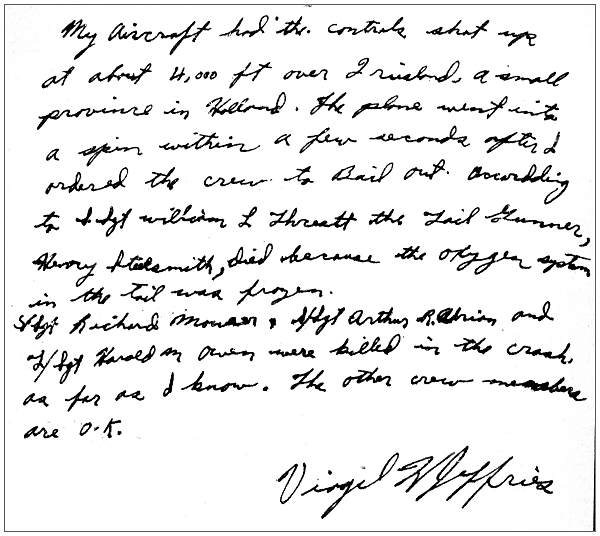 My Aircraft had the controls shot up
at about 4,000 ft over Friesland, a small
province in Holland. The plane went into
a spin within a few seconds after I
ordered the crew to Bail out. Accordding
to S Sgt William L Threatt the Tail Gunner,
Henry Stelsmith, died because the oxygen system
in the tail was frozen.
S/Sgt Richard Mouser, S/Sgt Arthur R. Adrian and
T/Sgt Harold M Owen were killed in the crash,
as far as I know. The other crew members
are O.K.
Virgil W Jeffries